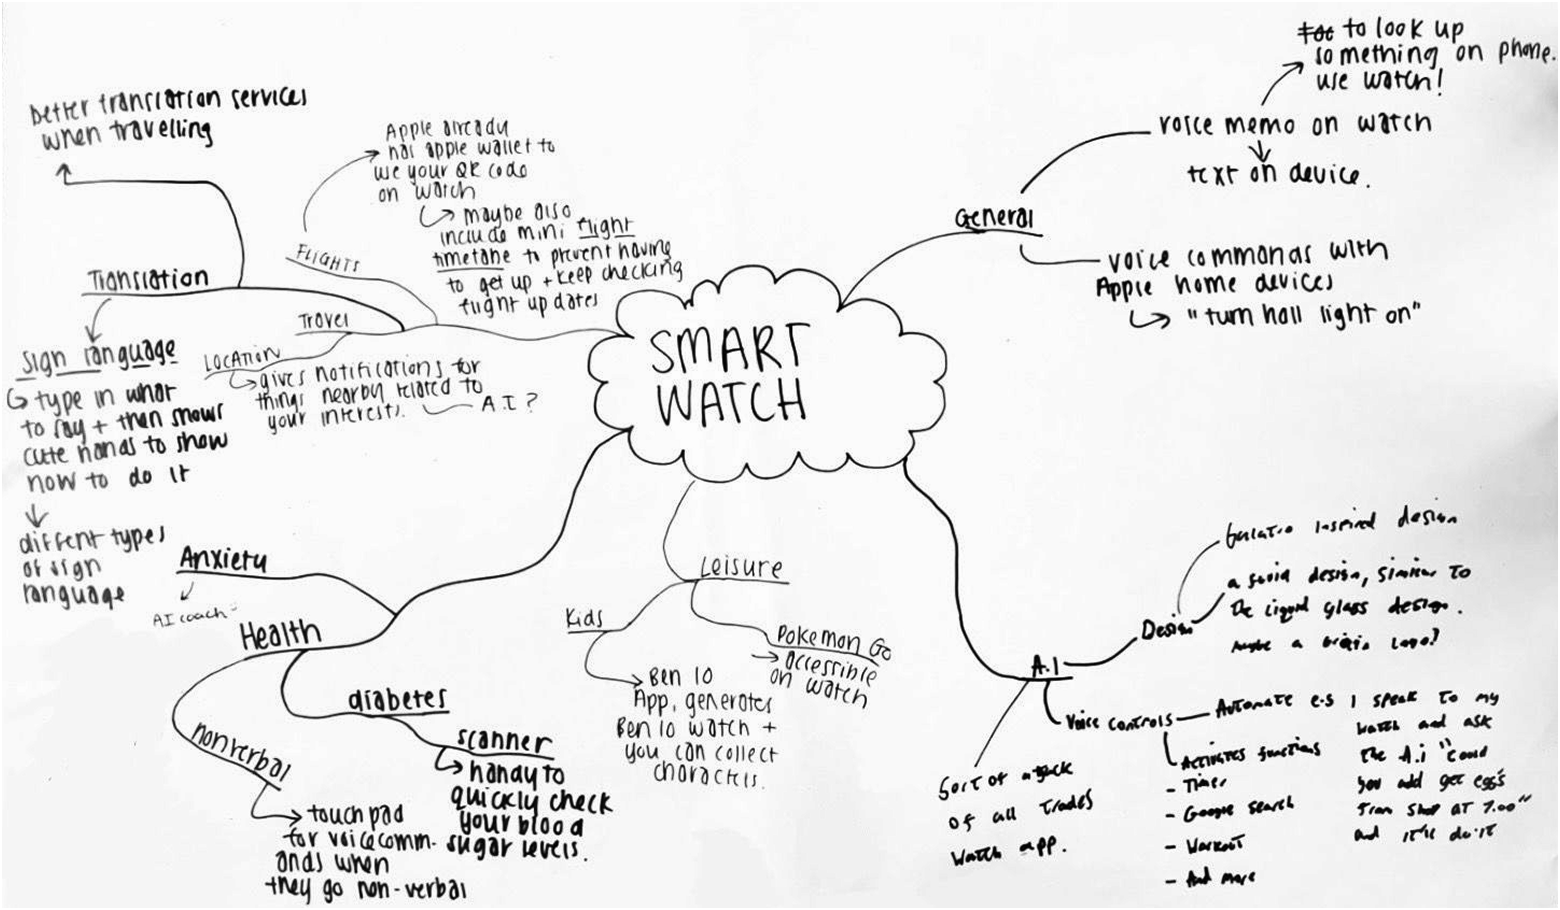 SMART
WATCH
General
voice memo on watch
to look up
something on phone.
use watch!
text on device.
voice commands with
Apple home devices
"turn hall light on"
Travel
FLIGHTS
Apple already
has apple wallet to
use your QR code
on watch
maybe also
include mini flight
timetable to prevent having
to get up + keep checking
flight updates
Translation
better translation services
when travelling
sign language
type in what
to say + then shows
cute hands to show
how to do it
different types
of sign
language
LOCATION
gives notifications for
things nearby related to
your interests.
A.I?
Health
Anxiety
AI coach
diabetes
scanner
handy to
quickly check
your blood
sugar levels.
nonverbal
touch pad
for voicecomm-
ands when
they go non-verbal
Leisure
Kids
Ben 10
App, generates
Ben 10 watch +
you can collect
characters.
Pokemon Go
accessible
on watch
A.I
Design
inspired design
design, similar to
the liquid glass design.
maybe a brain logo?
Voice controls
Automate e.g I speak to my
watch and ask
the A.i "could
you add get eggs
from shop at 7.00"
and it'll do it
Activates functions
- Timer
- Google search
- Workout
- And more
Sort of a jack
of all trades
watch app.